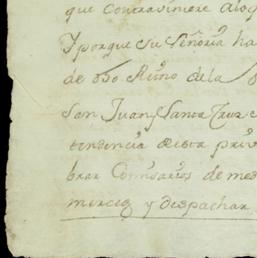 que Contraviniere alo
Y porque su Señoria ha
de dho Reino de la
San Juan y Santa Cruz
tendencia desta prov
brar Comisarios de med
y despachar